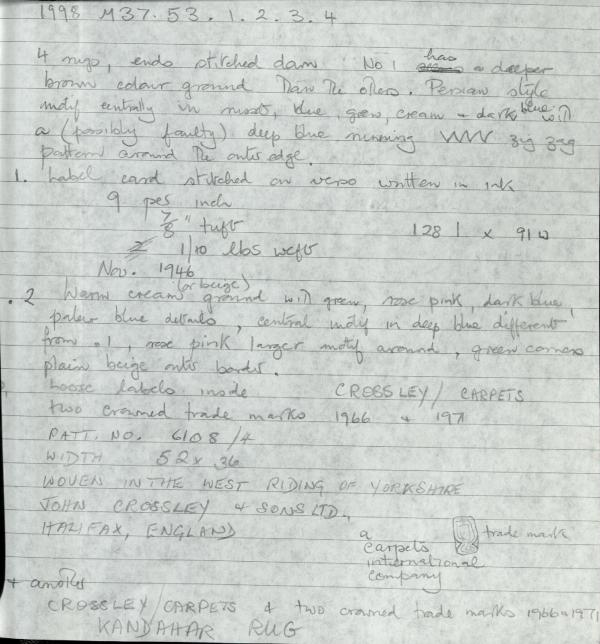 1998 M37.53.1.2.3.4
4 rugs, ends stitched down No 1 has a deeper
brown colour ground than the others. Persian style
motif centrally in rust, blue, green, cream + dark blue with
a (possibly faulty) deep blue running VVVV zig zag
pattern around the outer edge.
1. Label card stitched on verso written in ink
9 pcs inch
7/8" tuft 128 l x 91 w
1/10 lbs weft
Nov. 1946
.2 Warm cream (or beige) ground with green, rose pink, dark blue,
paler blue details, central motif in deep blue different
from .1, rose pink larger motif around, green corners
plain beige outer border.
Loose labels inside CROSSLEY/CARPETS
two crowned trade marks 1966 + 1971
PATT. NO. 6108/4
WIDTH 52 x 36
WOVEN IN THE WEST RIDING OF YORKSHIRE
JOHN CROSSLEY & SONS LTD.,
HALIFAX, ENGLAND
a
carpets
international
company
trade mark
+ another
CROSSLEY/CARPETS & two crowned trade marks 1966 + 1971
KANDAHAR RUG